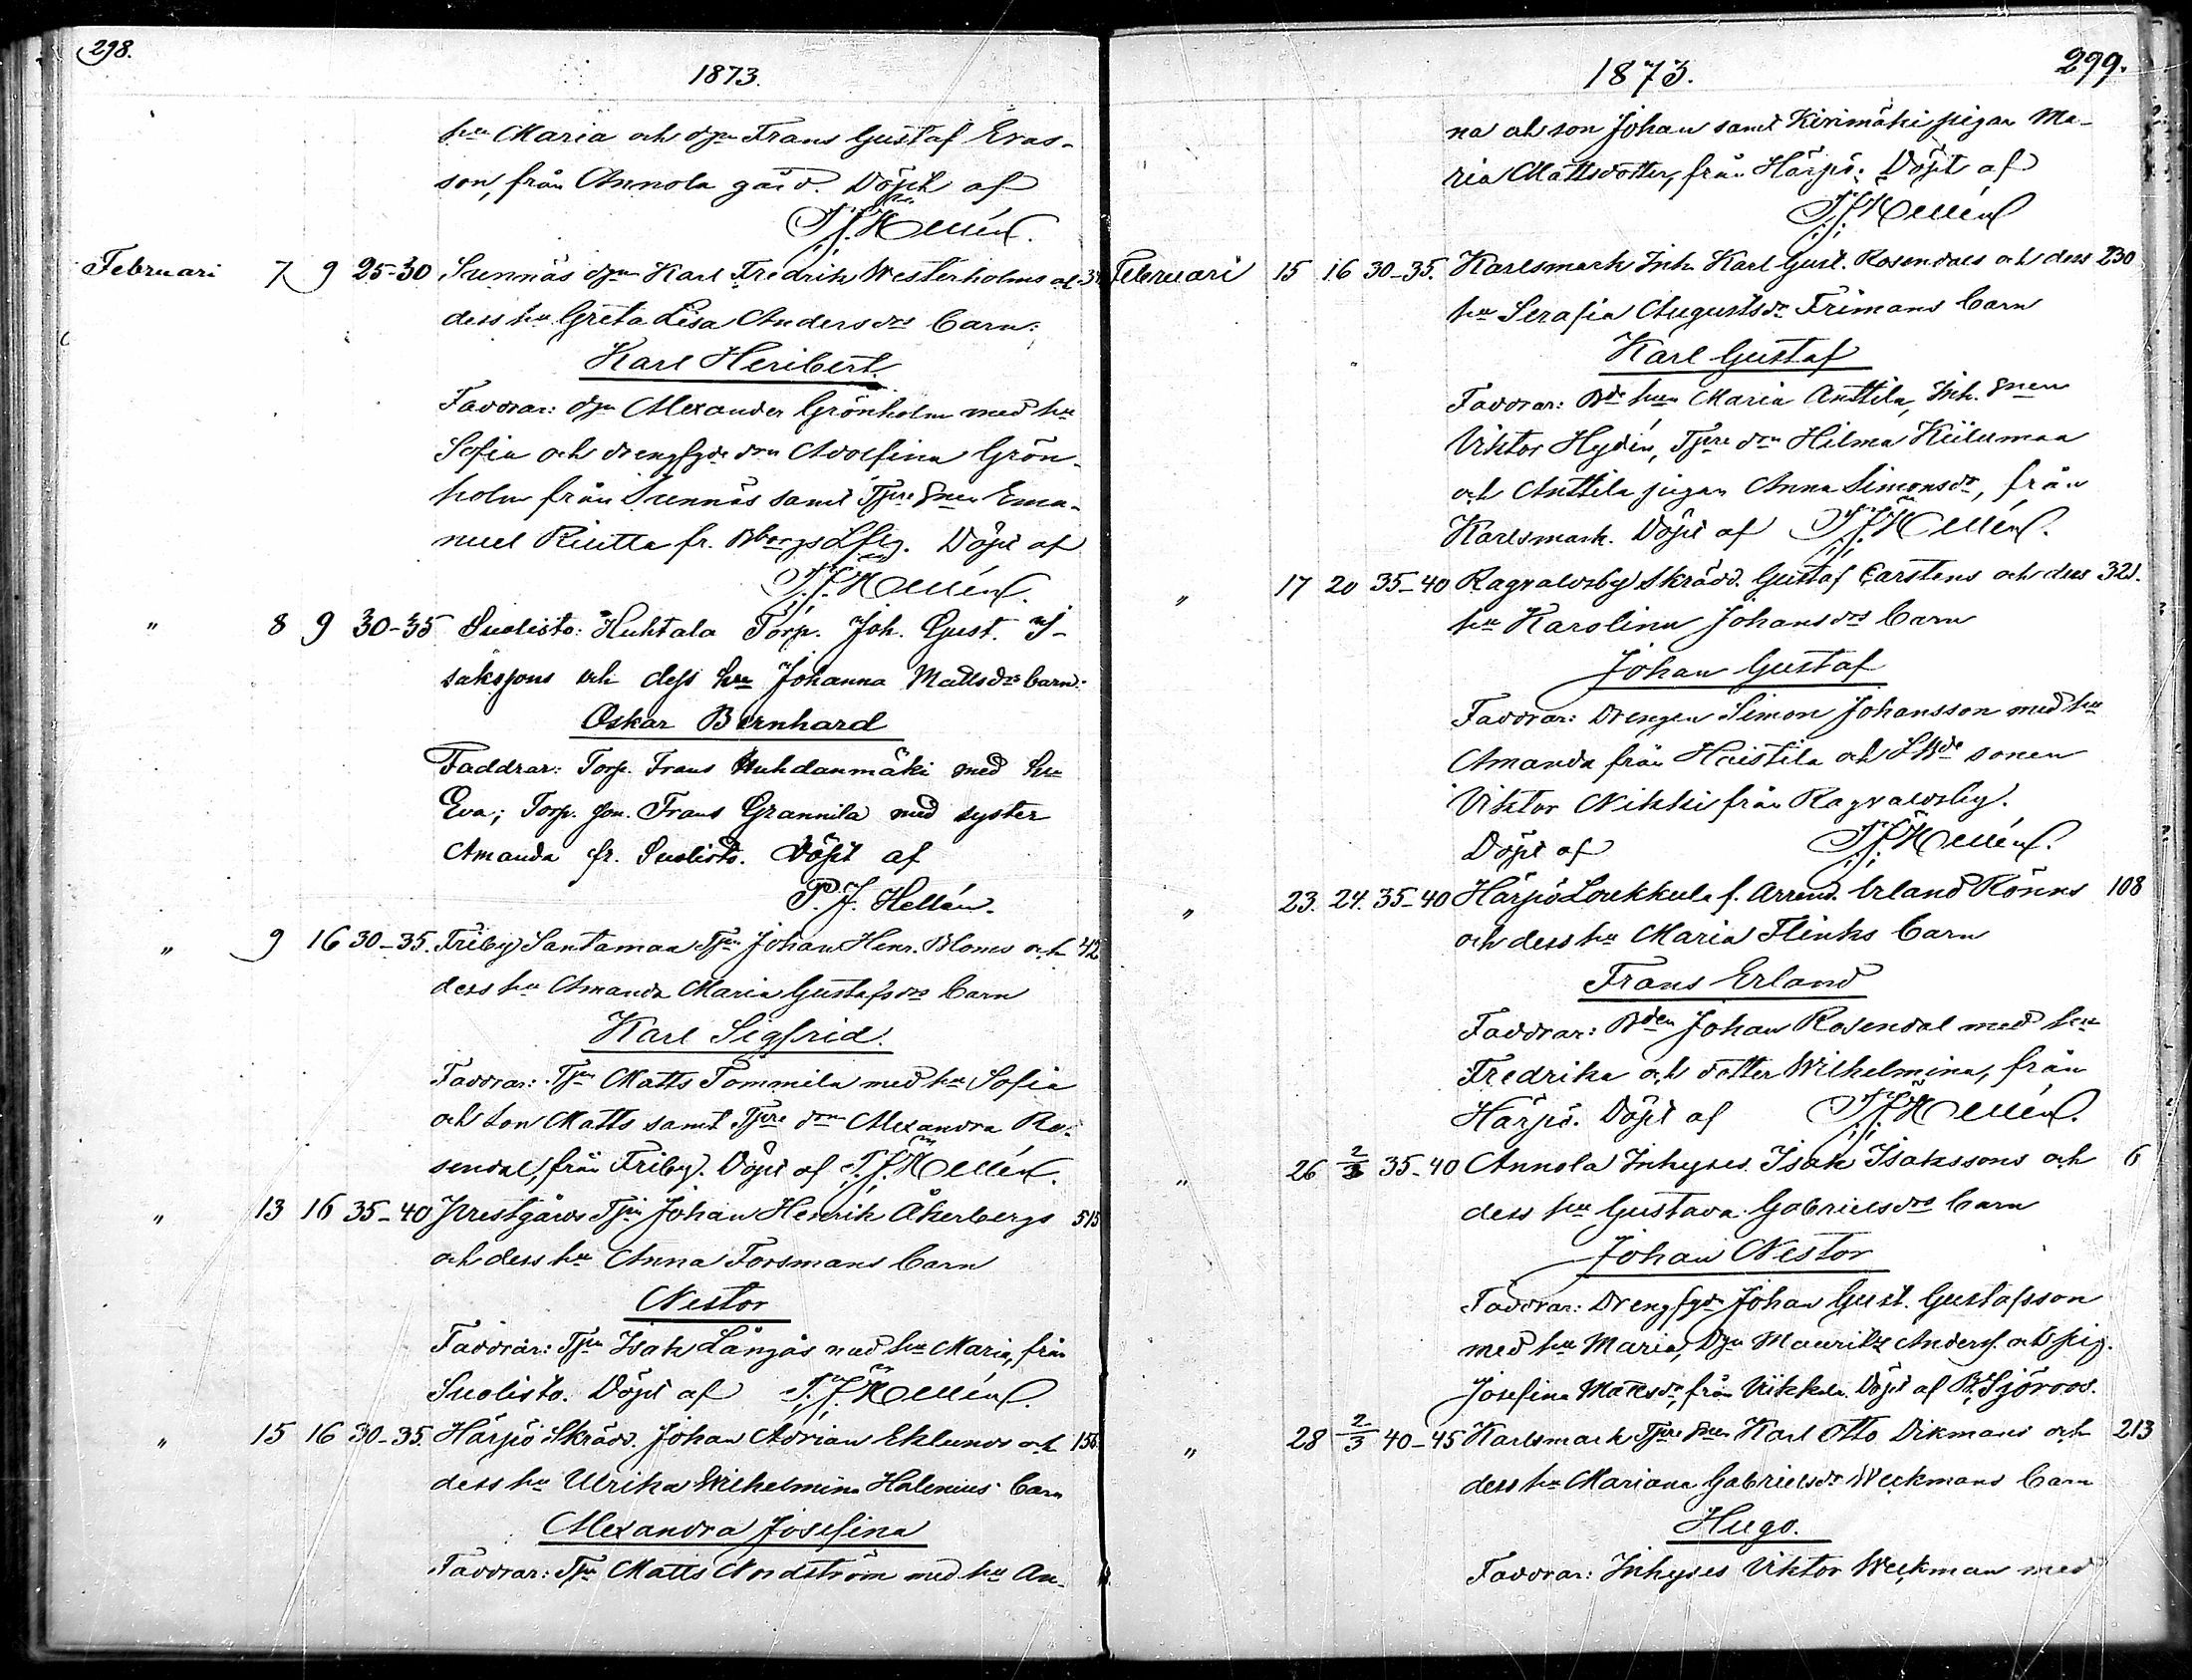 298.
1873.
hu Maria och dgn Frans Gustaf Eras-
son, från Annola gård. Döpt af
P. J. Hellén.
Februari 7 9 25-30 Sunnäs dgn Karl Fredrik Westerholms o.
dess hu Greta Lisa Andersdrs barn:
Karl Heribert.
Faddrar: dgn Alexander Grönholm med hu
Sofia och drengfgde drn Adolfina Grön-
holm från Sunnäs samt Tjere Snen Ema-
nuel Riutta fr. Bborgs Lfg. Döpt af
P. J. Hellén.
" 8 9 30-35 Suolisto: Huhtala Torp. Joh. Gust. I-
sakssons och dess hu Johanna Mattsdrs barn:
Oskar Bernhard
Faddrar: Torp. Frans Huhdanmäki med hu
Eva; Torp. son. Frans Grannila med syster
Amanda fr. Suolisto. Döpt af
P. J. Hellén.
" 9 16 30-35. Friby Santamaa Tjn Johan Henr. Bloms och 42
dess hu Amanda Maria Gustafsdrs barn
Karl Sigfrid.
Faddrar: Tjn Matts Tommila med hu Sofia
och son Matts samt Tjere drn Alexandra Ro-
sendal, från Friby. Döpt af P. J. Hellén.
" 13 16 35-40 Prestgårds Tjn Johan Henrik Åkerbergs 515
och dess hu Anna Forsmans barn
Nestor
Faddrar: Tjn Isak Långås med hu Maria, från
Suolisto. Döpt af P. J. Hellén.
" 15 16 30-35. Härpö Skrädd. Johan Adrian Eklunds och 156
dess hu Ulrika Wilhelmina Helenius barn
Alexandra Josefina
Faddrar: Tjn Matts Nordström med hu An-
1873.
299.
na och son Johan samt Kirimäki pigan Ma-
ria Mattsdotter, från Härpö. Döpt af
P. J. Hellén
Februari 15 16 30-35. Karlsmark Inh. Karl Gust. Rosendals och dess 230
hu Serafia Augustsdr Frimans barn
Karl Gustaf
Faddrar: Bde hun Maria Anttila, Inh. Snen
Viktor Hydén, Tjere drn Hilma Kiilumaa
och Anttila pigan Anna Simonsdr, från
Karlsmark. Döpt af P. J. Hellén.
" 17 20 35-40 Ragvaldsby Skrädd. Gustaf Carstens och dess 321.
hu Karolina Johansdrs barn
Johan Gustaf
Faddrar: Drengen Simon Johansson med hu
Amanda från Haistila och LBde sonen
Viktor Nikki från Ragvaldsby.
Döpt af P. J. Hellén.
" 23. 24. 35-40 Härpö Loukkula f. Arrend. Erland Rönns 108
och dess hu Maria Flinks barn
Frans Erland
Faddrar: Bden Johan Rosendal med hu
Fredrika och dotter Wilhelmina, från
Härpö. Döpt af P. J. Hellén.
" 26 2/3 35-40 Annola Inhyses Isak Isakssons och 6
dess hu Gustava Gabrielsdrs barn
Johan Nestor
Faddrar: Drengfgdn Johan Gust. Gustafsson
med hu Maria, Dgn Mauritz Anders. och pig.
Josefina Mattsdr, från Viikkala. Döpt af Br. Sjöroos.
" 28 2/3 40-45 Karlsmark Tjere Snen Karl Otto Dikmans och 213
dess hu Mariana Gabrielsdr Weckmans barn
Hugo.
Faddrar: Inhyses Viktor Weckman med